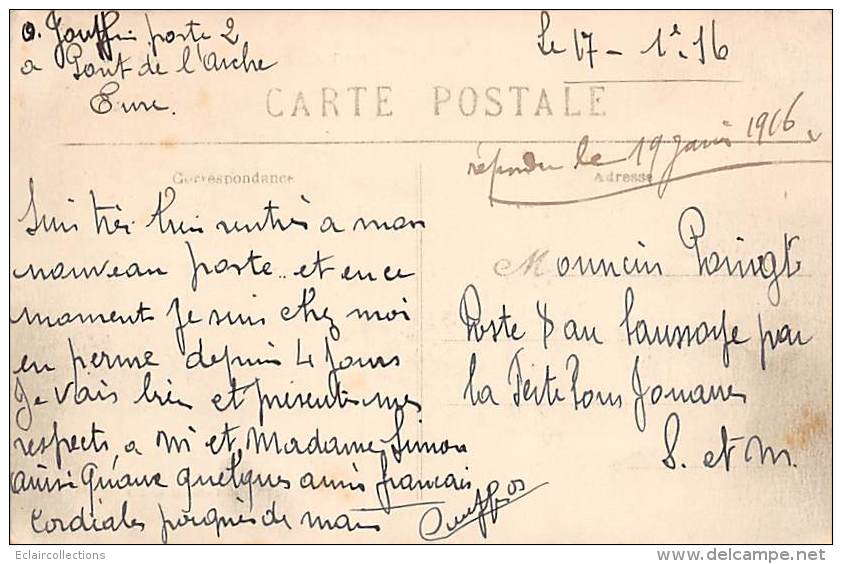 poste 2
a Pont de l'Arche
Eure.
Le 17 - 1e - 16
CARTE POSTALE
répondu le 19 Janvier 1916
Correspondance
Adresse
Suis très bien rentrés a mon
nouveau poste .. et en ce
moment Je suis chez moi
en perme depuis 4 Jours
Je vais bien et présente mes
respects a M et Madame Simon
ainsi Qu'aux quelques amis français
Cordiales poignés de main
Monsieur
Poste au Saussoye par
la Ferte sous Jouarre
S. et M.
Eclaircollections
www.delcampe.net